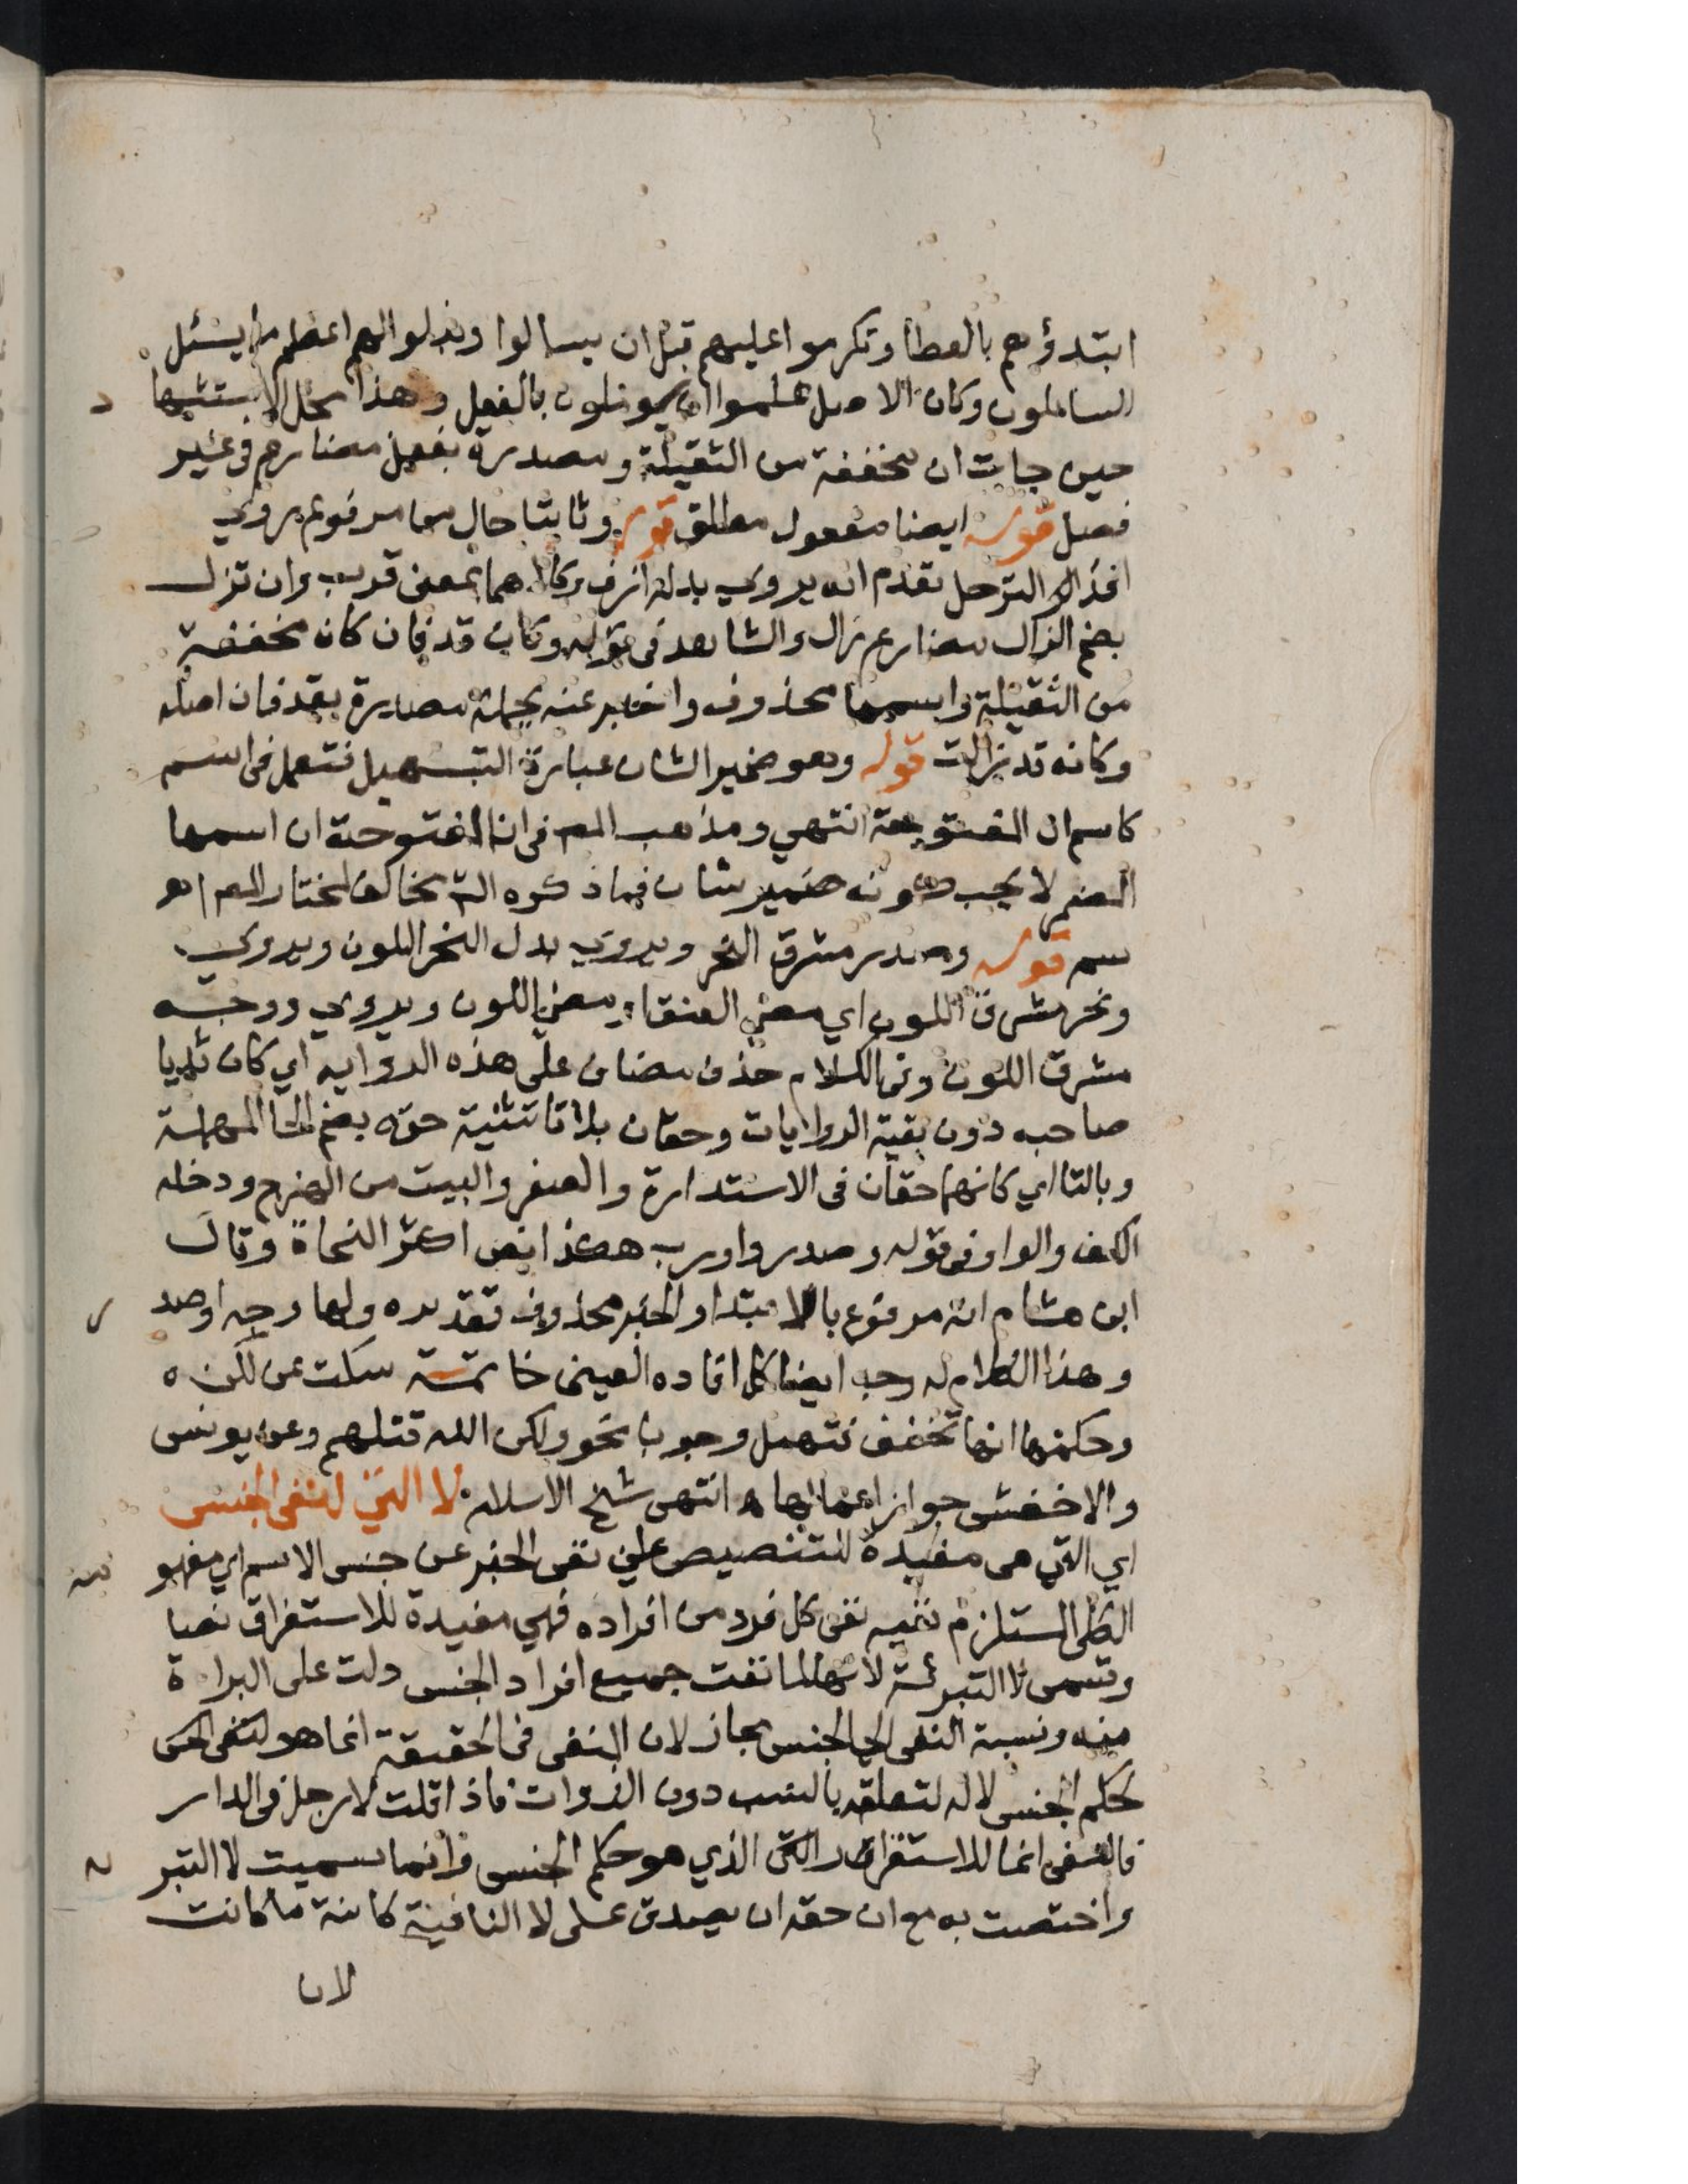 ابتدؤهم بالعطا وتكرموا عليهم قبل ان يسالوا وبذلوا لهم اعظم ما يسئل
السائلون وكان الاصل علموا ان يوملون بالفعل وهذا محل الاستشها د
حين جات ان مخففة من الثقيلة ومصدرة بفعل مضارع في غير
فصل قوله ايضا مفعول مطلق قوله وثابتا حال مما مر قوله يروي
افد الترحل تقدم انه يروي بدله ازف وكلاهما بمعنى قرب وان تزل
بضم الزال مضارع زال والشاهد في قوله وكان قد فان كان مخففة
من الثقيلة واسمها محذوف واخبر عنه بجملة مصدرة بقد فان اصله
وكانه قد زالت قوله وهو ضمير الشان عبارة التسهيل فتعمل في اسم
كاسم ان المفتوحة انتهي ومذهب المص في ان المفتوحة ان اسمها
الضم لا يجب كونه ضمير شان فما ذكره الش مخالف لمختار المص اهـ
سم قوله وصدر مشرق النحر ويروي بدل النحر اللون ويروي
ونحر مشرق اللون اي مضي العنقا، مضي اللون ويروي ووجه
مشرق اللون وفي الكلام حذف مضاف على هذه الرواية اي كان ثديا
صاحبه دون بقية الروايات وحقان بلا تا تثنية حقه بضم الحا المهملة
وبالتا اي كانهما حقان في الاستدارة والصغر والبيت من الهزج ودخله
الكف والواو في قوله وصدر واو رب هكذا نص اكثر النحاة وقال
ابن هشام انه مرفوع بالابتدا والخبر محذوف تقديره ولها وجه او صد ر
وهذا الكلام له وجه ايضا كما افاده العيني خاتمة سكت عن لكن ه
وحكمها انها تخفف فتهمل وجوبا نحو ولكن الله قتلهم وعن يونس
والاخفش جواز اعمالها ه انتهى شيخ الاسلام لا التي لنفي الجنس
اي التي هي مفيدة للتنصيص على نفي الخبر عن جنس الاسم اي مفهو مه
الكلى المستلزم نفيه نفى كل فرد من افراده فهي مفيدة للاستغراق نصا
وتسمى لا التبرئة لانها لما نفت جميع افراد الجنس دلت على البراءة
منه ونسبة النفى الى الجنس مجاز لان النفى في الحقيقة انما هو لنفى
لحكم الجنس لا له لتعلقه بالنسب دون الذوات فاذا قلت لا رجل في الدار
فالنفى انما للاستقرار الذي هو حكم الجنس وانما سميت لا التبر ئه
واختصت به مع ان حقه ان يصدق على لا النافية كائنة ما كانت
لان